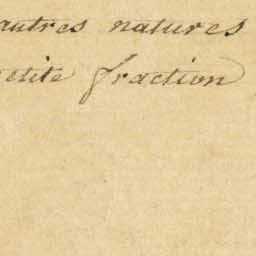 autres natures
etite fraction